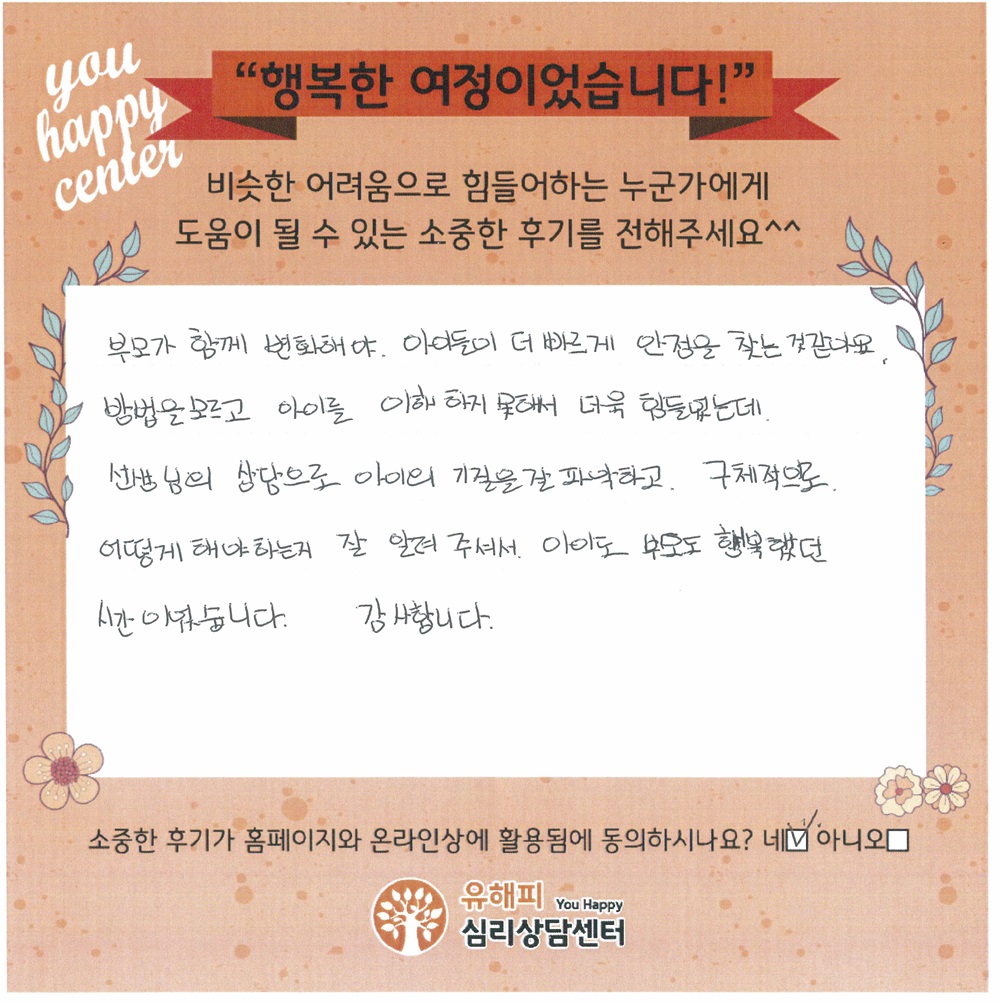 you
happy
center
“행복한 여정이었습니다!”
비슷한 어려움으로 힘들어하는 누군가에게
도움이 될 수 있는 소중한 후기를 전해주세요^^
부모가 함께 변화해야. 아이들이 더 빠르게 안정을 찾는것같아요.
방법을모르고 아이를 이해 하지 못해서 더욱 힘들었는데.
선생님의 상담으로 아이의 기질을잘 파악하고. 구체적으로.
어떻게 해야하는지 잘 알려 주셔서. 아이도 부모도 행복했던
시간이였습니다. 감사합니다.
소중한 후기가 홈페이지와 온라인상에 활용됨에 동의하시나요? 네☑ 아니오☐
유해피 You Happy
심리상담센터